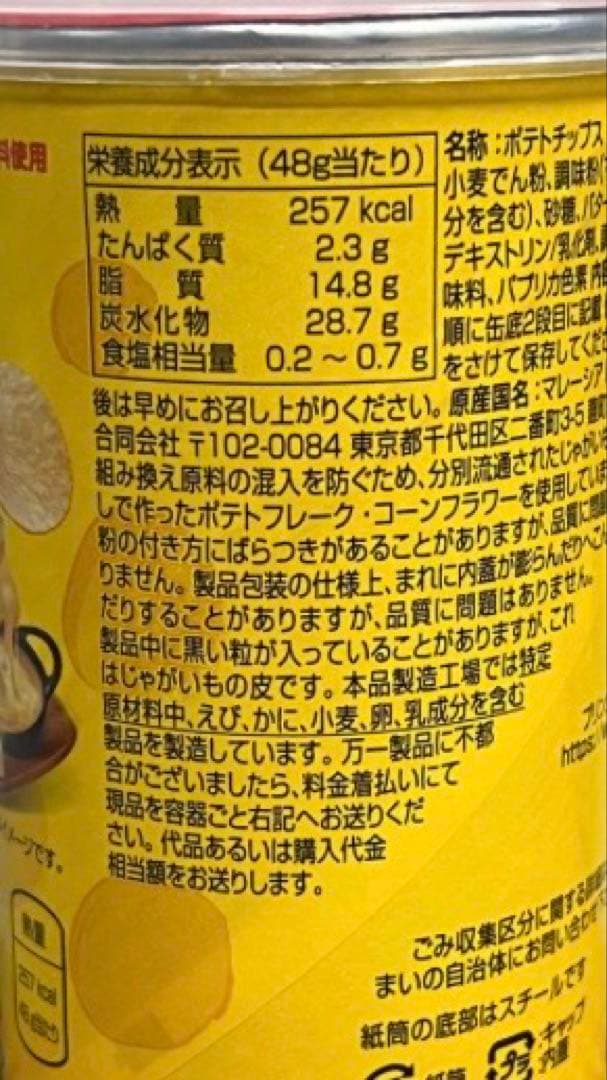 料使用
栄養成分表示（48g当たり）
熱量 257 kcal
たんぱく質 2.3 g
脂質 14.8 g
炭水化物 28.7 g
食塩相当量 0.2 ～ 0.7 g
名称：ポテトチップス
小麦でん粉、調味粉
分を含む）、砂糖、バター
デキストリン/乳化剤、
味料、パプリカ色素 内
順に缶底2段目に記載
をさけて保存してくだ
後は早めにお召し上がりください。原産国名：マレーシア
合同会社 〒102-0084 東京都千代田区二番町3-5
組み換え原料の混入を防ぐため、分別流通されたじゃがい
しで作ったポテトフレーク・コーンフラワーを使用してい
粉の付き方にばらつきがあることがありますが、品質に問題
りません。製品包装の仕様上、まれに内蓋が膨らんだりへこん
だりすることがありますが、品質に問題はありません。
製品中に黒い粒が入っていることがありますが、これ
はじゃがいもの皮です。本品製造工場では特定
原材料中、えび、かに、小麦、卵、乳成分を含む
製品を製造しています。万一製品に不都
合がございましたら、料金着払いにて
現品を容器ごと右記へお送りくだ
さい。代品あるいは購入代金
相当額をお送りします。
プリン
https:/
イメージです。
熱量
257 kcal
48g当たり
ごみ収集区分に関する
まいの自治体にお問い合わせ
紙筒の底部はスチールです
紙筒
プラ
:キャップ
内蓋